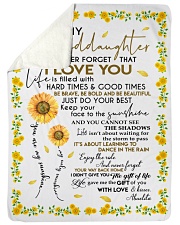 MY
Granddaughter
NEVER FORGET THAT
I LOVE YOU
Life is filled with
HARD TIMES & GOOD TIMES
BE BRAVE, BE BOLD AND BE BEAUTIFUL
JUST DO YOUR BEST
Keep your
face to the sunshine
AND YOU CANNOT SEE
THE SHADOWS
Life isn't about waiting
for the storm to pass
IT'S ABOUT LEARNING TO
DANCE IN THE RAIN
Enjoy the ride
And never forget
YOUR WAY BACK HOME
I DIDN'T GIVE YOU The gift of life
Life gave me the GIFT OF you
WITH LOVE & kisses
Abuelita